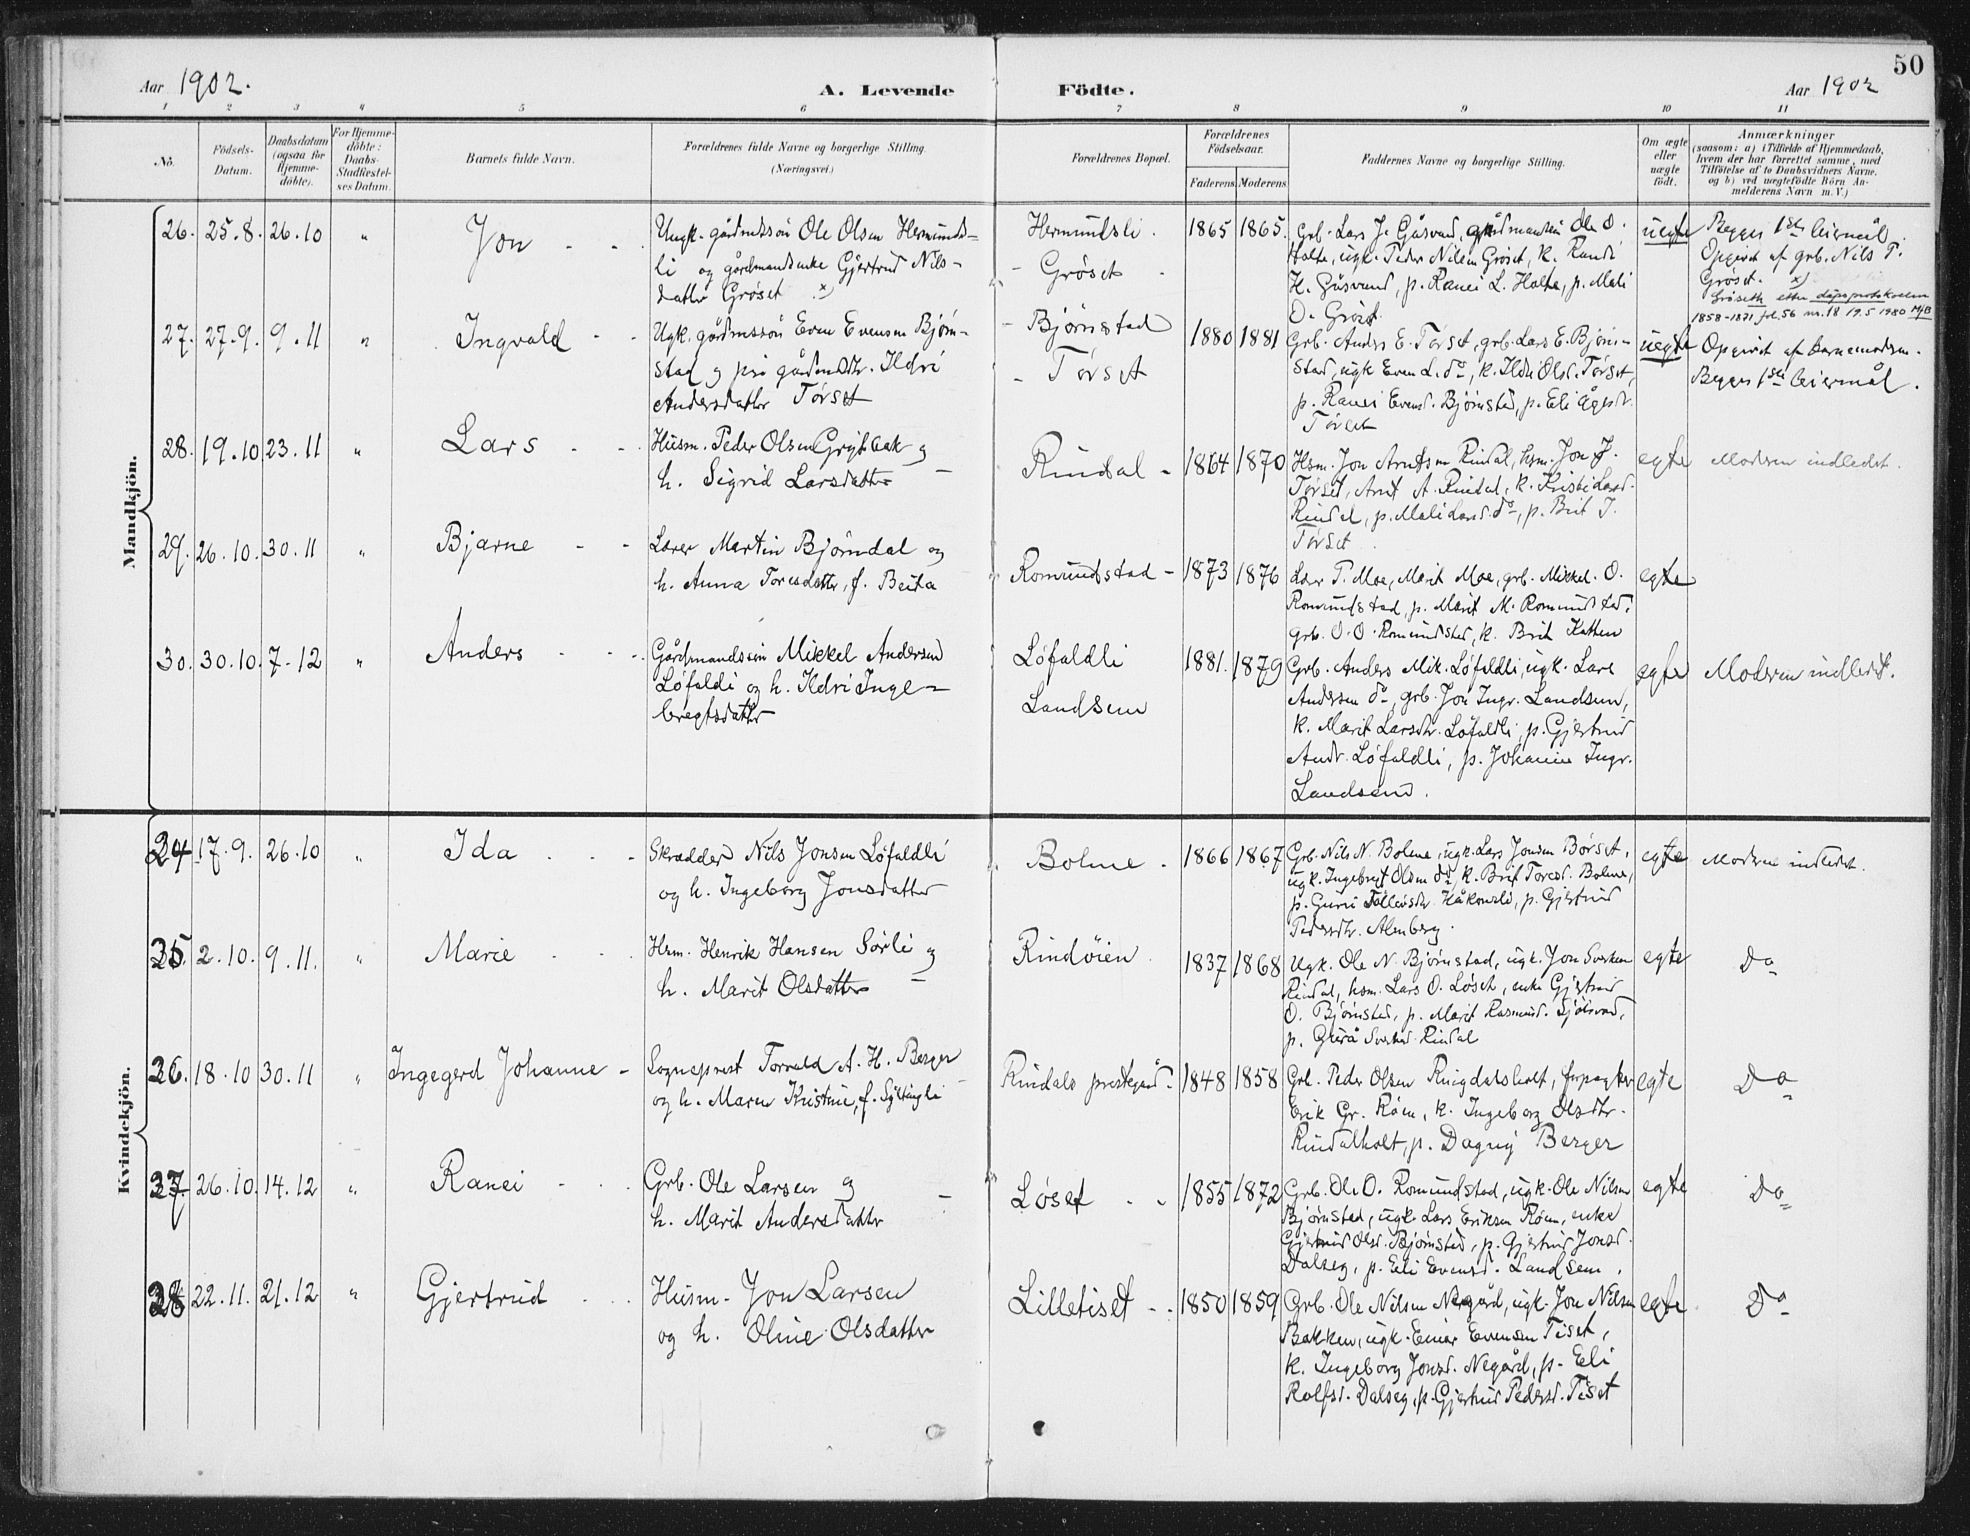 50
Aar 1902.
A. Levende
Födte.
Aar 1902
1 2 3 4 5 6 7 8 9 10 11
No.
Födsels-
Datum.
Daabsdatum
(ogsaa for
Hjemme-
döbte).
For Hjemme-
döbte:
Daabs-
Stadfæstel-
ses Datum.
Barnets fulde Navn.
Forældrenes fulde Navne og borgerlige Stilling.
(Næringsvei.)
Forældrenes Bopæl.
Forældrenes
Födselsaar.
Faderens. Moderens.
Faddernes Navne og borgerlige Stilling.
Om ægte
eller
uægte
født.
Anmærkninger
(saasom: a) i Tilfælde af Hjemmedaab,
hvem der har forrettet samme, med
Tilföielse af to Daabsvidners Navne.
og b) ved uægtefödte Börn An-
melderens Navn m. V.)
Mandkjön.
26. 25.8. 26.10 " Jon
Ungk. gårdmdssön Ole Olsen Hermunds-
li og gårdmandsenke Gjertrud Nils-
datter Grøset x)
Hermundsli.
Grøset
1865 1865.
Grb. Lars J. Gåsvand, gårdmandssön Ole O.
Holte, ugk. Peder Nilsen Grøset, k. Randi
H. Gåsvand, p. Ranei L. Holte, p. Mali
O. Grøset
uegte
Begges 1ste leiermål.
Opgivet af grb. Nils P.
Grøset. x)
Grøseth etter dåpsprotokollen
1858-1871 fol. 56 nr. 18 19.5 1980
27. 27.9. 9.11 " Ingvald
Ugk. gårdmssön Even Evensen Bjørn-
stad og pie gårdmdtr. Ildri
Andersdatter Tørset
Bjørnstad
Tørset
1880 1881
Grb. Anders E. Tørset, grb. Lars E. Bjørn-
stad, ugk. Even L. do, k. Ildri Olsd. Tørset,
p. Ranei Evensd. Bjørnstad, p. Eli
Tørset
uegte
Opgivet af barnemoderen.
Begges 1ste leiermål.
28. 19.10 23.11 " Lars
Husm. Peder Olsen Grytbak og
h. Sigrid Larsdatter
Rindal
1864 1870
Hsm. Jon Arntsen Rindal, hsm. Jon J.
Tørset, Arnt A. Rindal, k. Kristi Larsd.
Rindal, p. Mali Larsd. do, p. Brit J.
Tørset
egte
Moderen indledet.
29. 26.10. 30.11 " Bjarne
Lærer Martin Bjørndal og
h. Anna Toresdatter, f. Beita
Romundstad
1873 1876
Lær P. Moe, Marit Moe, grb. Mikkel O.
Romundstad, p. Marit M. Romundstad,
grb. O.O. Romundstad, k. Brit Katten
egte
30. 30.10. 7-12 " Anders
Gårdmandssön Mikkel Andersen
Løfaldli og h. Ildri Inge-
bregtsdatter
Løfaldli
Landsem
1881. 1879
Grb. Anders Mik. Løfaldli, ugk. Lars
Andersen do, grb. Jon Ingr. Landsem,
k. Marit Larsdtr. Løfaldli, p. Gjertrud
Andr. Løfaldli, p. Johanne Ingr.
Landsem.
egte
Moderen indledet.
Kvindekjön.
24 17.9. 26.10 " Ida
Skrædder Nils Jonsen Løfaldli
og h. Ingeborg Jonsdatter
Bolme
1866 1867
Grb. Nils N. Bolme, ugk. Lars Jonsen Børset,
ugk. Ingebregt Olsen do, k. Brit Toresd. Bolme,
p. Guru Håkonsli, p. Gjertrud
Pedersdtr. Almberg.
egte
Moderen indledet.
25 2.10. 9.11. " Marie
Hsm. Henrik Hansen Sørli og
h. Marit Olsdatter
Rindöien
1837 1868
Ugk. Ole N. Bjørnstad, ugk. Jon Sverken
Rindal, hsm. Lars O. Løset, enke Gjertrud
O. Bjørnstad, p. Marit Rasmusd.
p. Guru Rindal
egte
Do
26. 18.10 30.11 " Ingegerd Johanne
Sogneprest Torvald A. H. Berger
og h. Maren Kristine, f.
Rindals prestegård
1848 1858
Grb. Peder Olsen Ringdalsholt, forpagter
Erik Gr. Röen, k. Ingeborg Olsdtr.
Rindalholt, p. Dagny Berger
egte
Do
27 26.10. 14.12 " Ranei
Grb. Ole Larsen og
h. Marit Andersdatter
Løset
1855 1872
Grb. Ole O. Romundstad, ugk. Ole Nilsen
Bjørnstad, ugk. Lars Eriksen Röen, enke
Gjertrud Olsd. Bjørnstad, p. Gjertrud Jonsd.
Dalseg, p. Eli Evensd. Landsem.
egte
Do
28 22.11. 21.12 " Gjertrud
Husm. Jon Larsen
og h. Oline Olsdatter
Lilletiset
1850 1859
Grb. Ole Nilsen Negård, ugk. Jon Nilsen
Bakken, ugk. Einar Evensen Tiset,
k. Ingeborg Jonsd. Negård, p. Eli
Rolfsd. Dalseg, p. Gjertrud Pedersd. Tiset
egte
Do